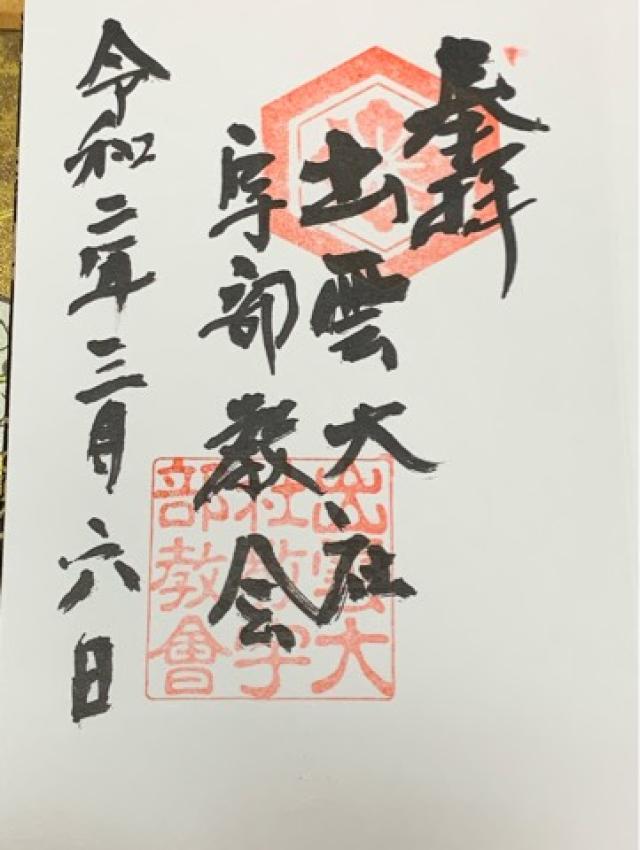 奉拝
出雲大社
宇部教会
令和二年三月六日
出雲大
社教宇
部教會